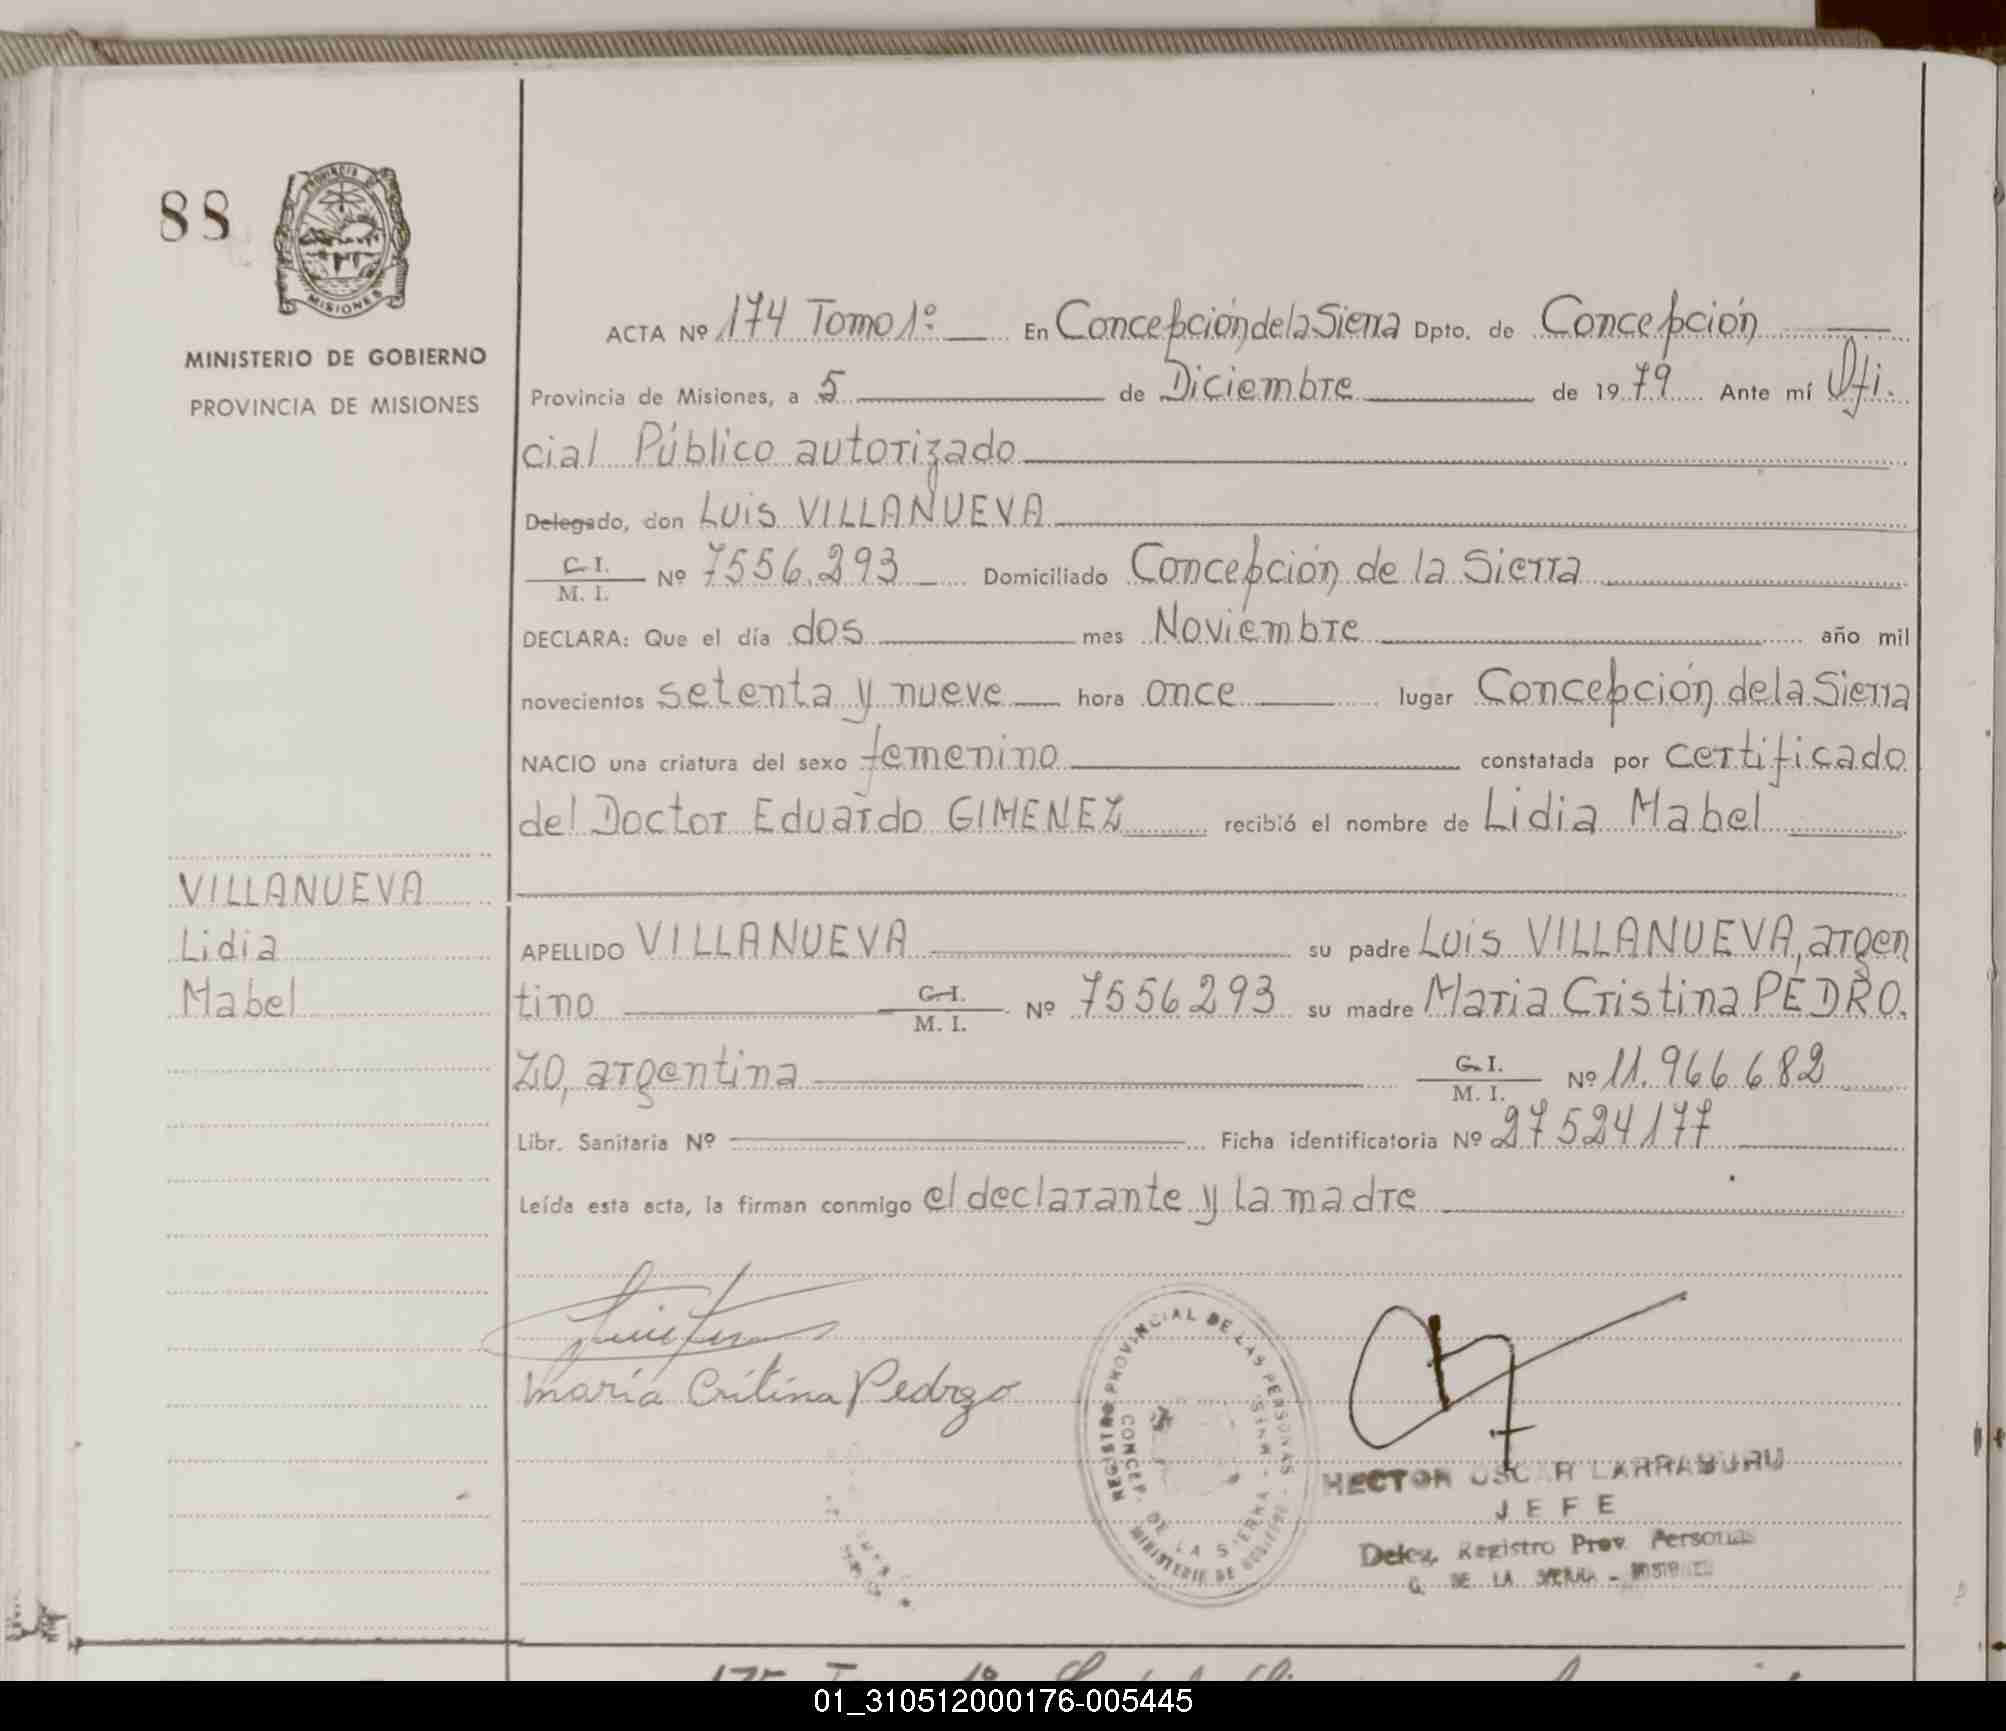 88
PROVINCIA DE
MISIONES
MINISTERIO DE GOBIERNO
PROVINCIA DE MISIONES
ACTA Nº 174 Tomo 1º En Concepción de la Sierra Dpto. de Concepción
Provincia de Misiones, a 5 de Diciembre de 1979 Ante mí Ofi.
cial Público autorizado
Delegado, don Luis VILLANUEVA
C. I.
M. I. Nº 7556.293 Domiciliado Concepción de la Sierra
DECLARA: Que el día dos mes Noviembre año mil
novecientos setenta y nueve hora once lugar Concepción de la Sierra
NACIO una criatura del sexo femenino constatada por certificado
del Doctor Eduardo GIMENEZ recibió el nombre de Lidia Mabel
VILLANUEVA
Lidia
Mabel
APELLIDO VILLANUEVA su padre Luis VILLANUEVA, argen
tino C. I.
M. I. Nº 7556293 su madre Maria Cristina PEDRO.
ZO, argentina C. I.
M. I. Nº 11.966.682
Libr. Sanitaria Nº Ficha identificatoria Nº 27524177
Leída esta acta, la firman conmigo el declarante y la madre
María Critina Pedrozo
REGISTRO PROVINCIAL DE LAS PERSONAS
CONCEP. DE LA SIERRA
MINISTERIO DE GOBIERNO
HECTOR OSCAR LARRABURU
JEFE
Deleg. Registro Prov. Personas
C. DE LA SIERRA - MISIONES
01_310512000176-005445